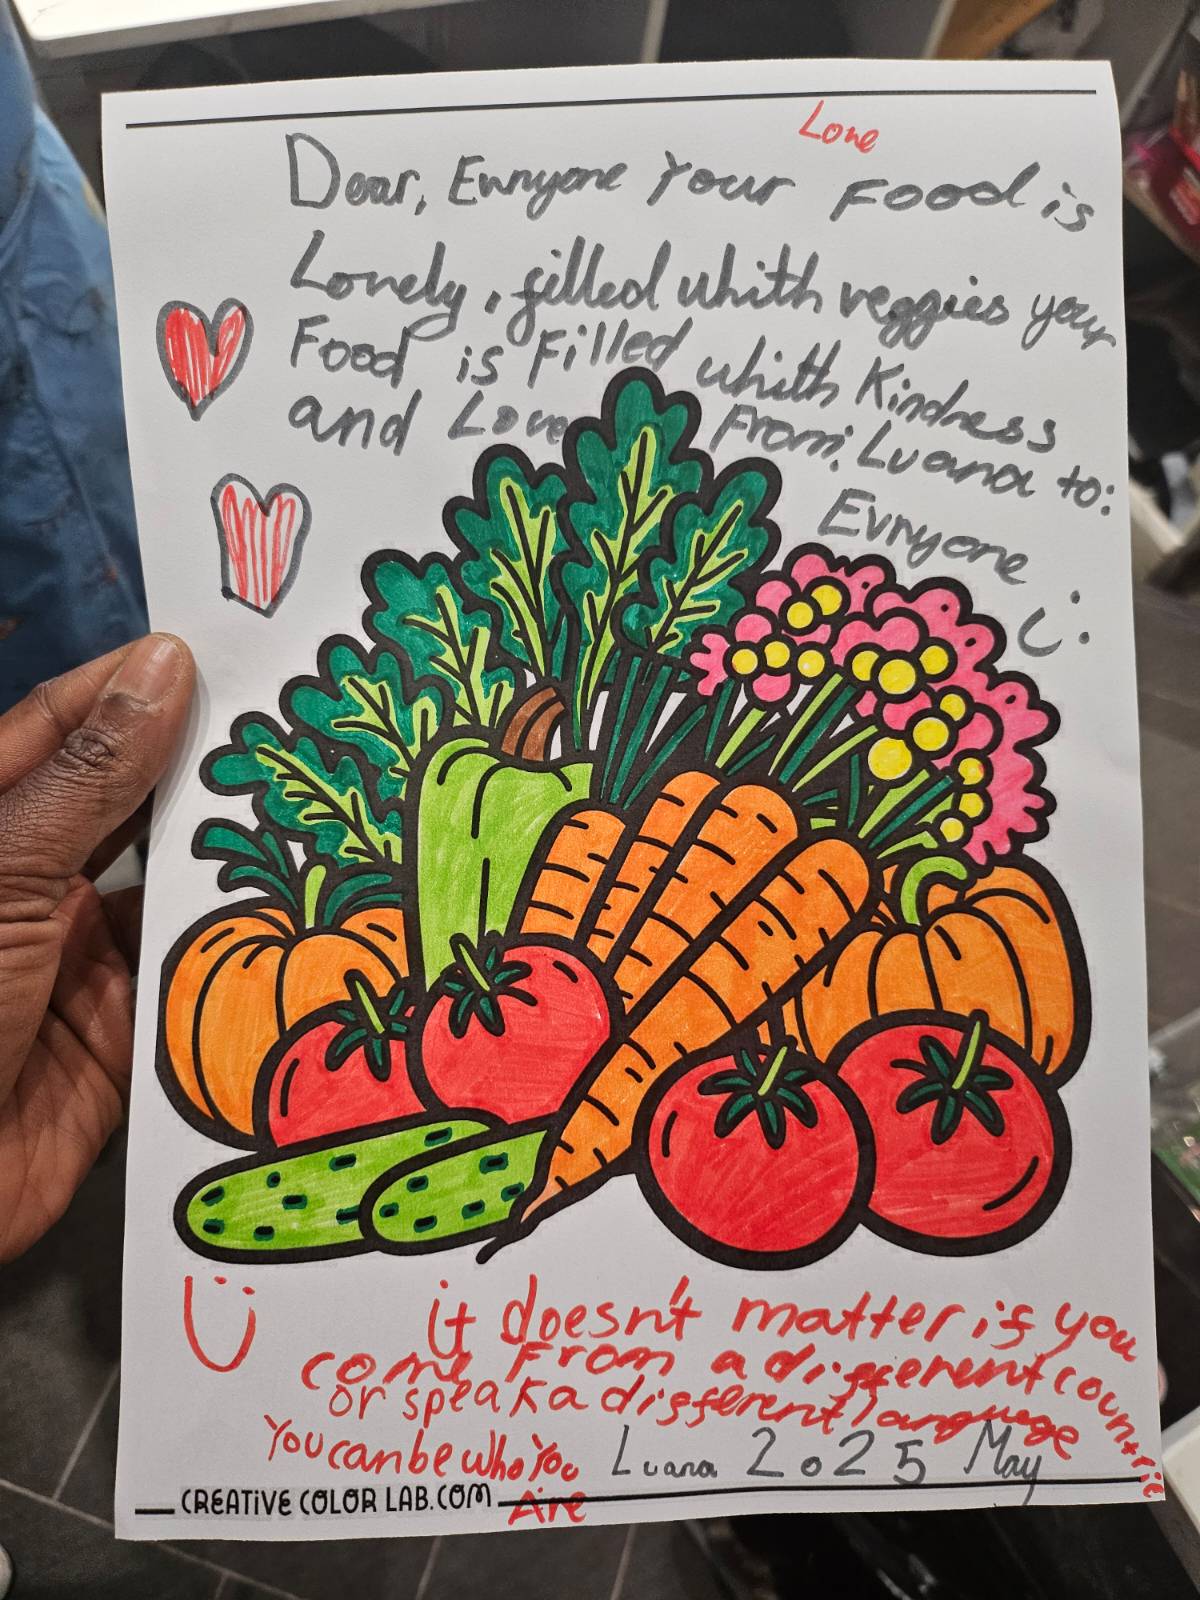 Love
Dear, Evryone Your Food is
Lovely, filled whith veggies your
Food is Filled whith Kindness
and Love From: Luana to:
Evryone
it doesn't matter if you
come From a different countrie
or speak a different language
You can be who You Luana 2025 May
Are
CREATIVE COLOR LAB.COM